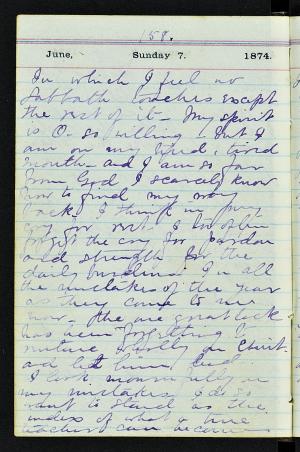 158.
June, Sunday 7. 1874.
In which I feel no
Sabbath touches except
the rest of it - My spirit
is O. so willing - but I
am on my tired tired
mouth - and I am so far
from God I scarcely know
how to find my way
back. I think in my
cry for rest. I too often
forget the cry for pardon
and strength for the
daily burdens. In all
the mistakes of the year
as they come to me
now - the one great lack
has been forgetting to
nurture wholly on Christ.
and
I look mournfully on
my mistakes. I do so
want to stand as the
index of what a true
teacher can become